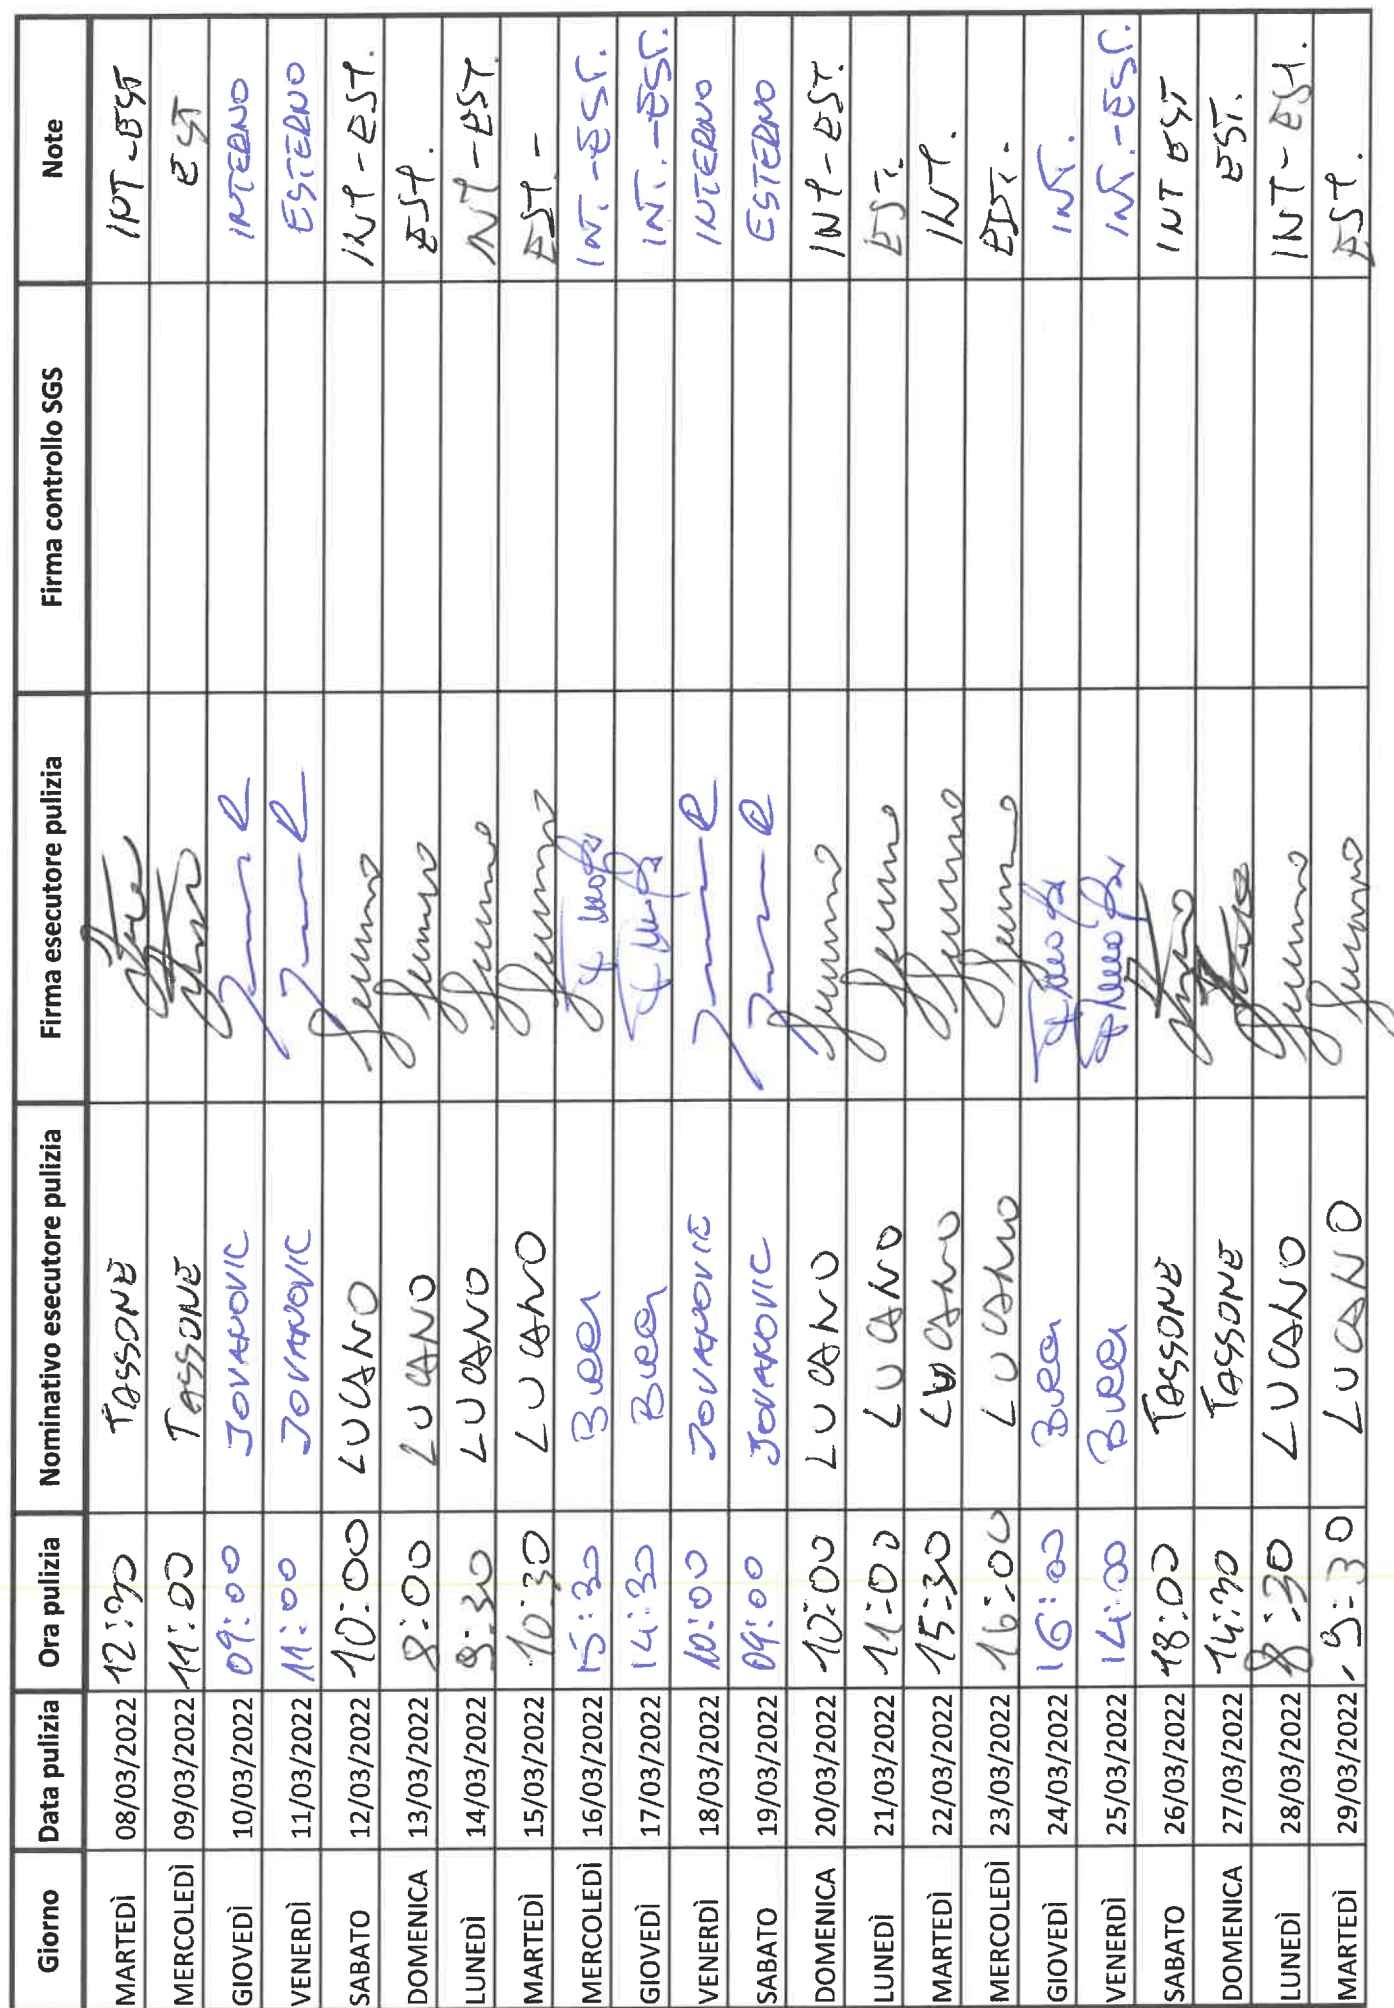 Giorno Data pulizia Ora pulizia Nominativo esecutore pulizia Firma esecutore pulizia Firma controllo SGS Note
MARTEDÌ 08/03/2022 12:30 TASSONE INT-EST
MERCOLEDÌ 09/03/2022 11:00 TASSONE EST
GIOVEDÌ 10/03/2022 09:00 JOVANOVIC INTERNO
VENERDÌ 11/03/2022 11:00 JOVANOVIC ESTERNO
SABATO 12/03/2022 10:00 LUCANO INT-EST.
DOMENICA 13/03/2022 8:00 LUCANO EST.
LUNEDÌ 14/03/2022 9:30 LUCANO INT-EST.
MARTEDÌ 15/03/2022 10:30 LUCANO EST-
MERCOLEDÌ 16/03/2022 15:30 INT.-EST.
GIOVEDÌ 17/03/2022 14:30 INT.-EST.
VENERDÌ 18/03/2022 10:00 JOVANOVIC INTERNO
SABATO 19/03/2022 09:00 JOVANOVIC ESTERNO
DOMENICA 20/03/2022 10:00 LUCANO INT-EST.
LUNEDÌ 21/03/2022 11:00 LUCANO EST.
MARTEDÌ 22/03/2022 15:30 LUCANO INT.
MERCOLEDÌ 23/03/2022 16:00 LUCANO EST.
GIOVEDÌ 24/03/2022 16:00 INT.
VENERDÌ 25/03/2022 14:00 INT.-EST.
SABATO 26/03/2022 18:00 TASSONE INT EST
DOMENICA 27/03/2022 14:30 TASSONE EST.
LUNEDÌ 28/03/2022 8:30 LUCANO INT-EST.
MARTEDÌ 29/03/2022 9:30 LUCANO EST.